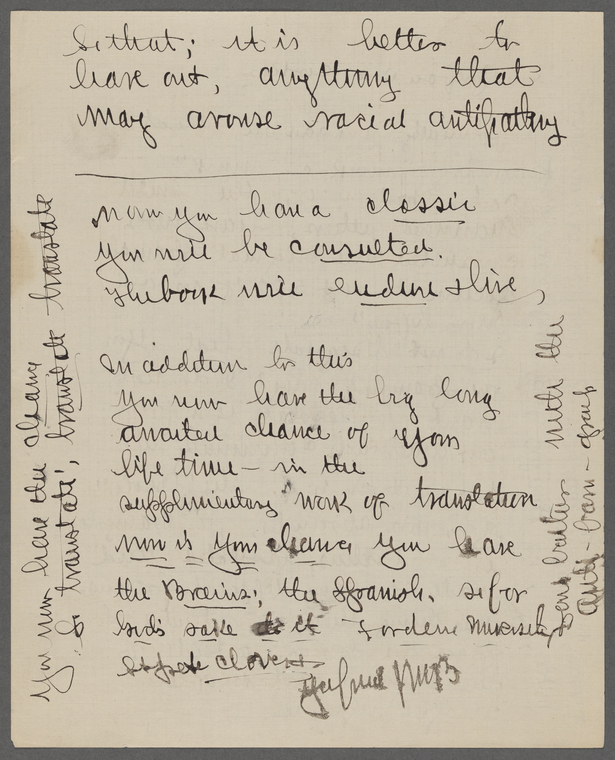 so that; it is better to
leave out, anything that
may arouse racial antipathy
now you have a classic
you will be consulted.
The book will endure & live,
In addition to this
you now have the big long
awaited chance of your
life time — in the
supplimentary work of translation
now is your chance you have
the Brains; the Spanish. so for
God's sake do it Fordem University
step
You now have the chance
to translate; translate translate
with the
anti-